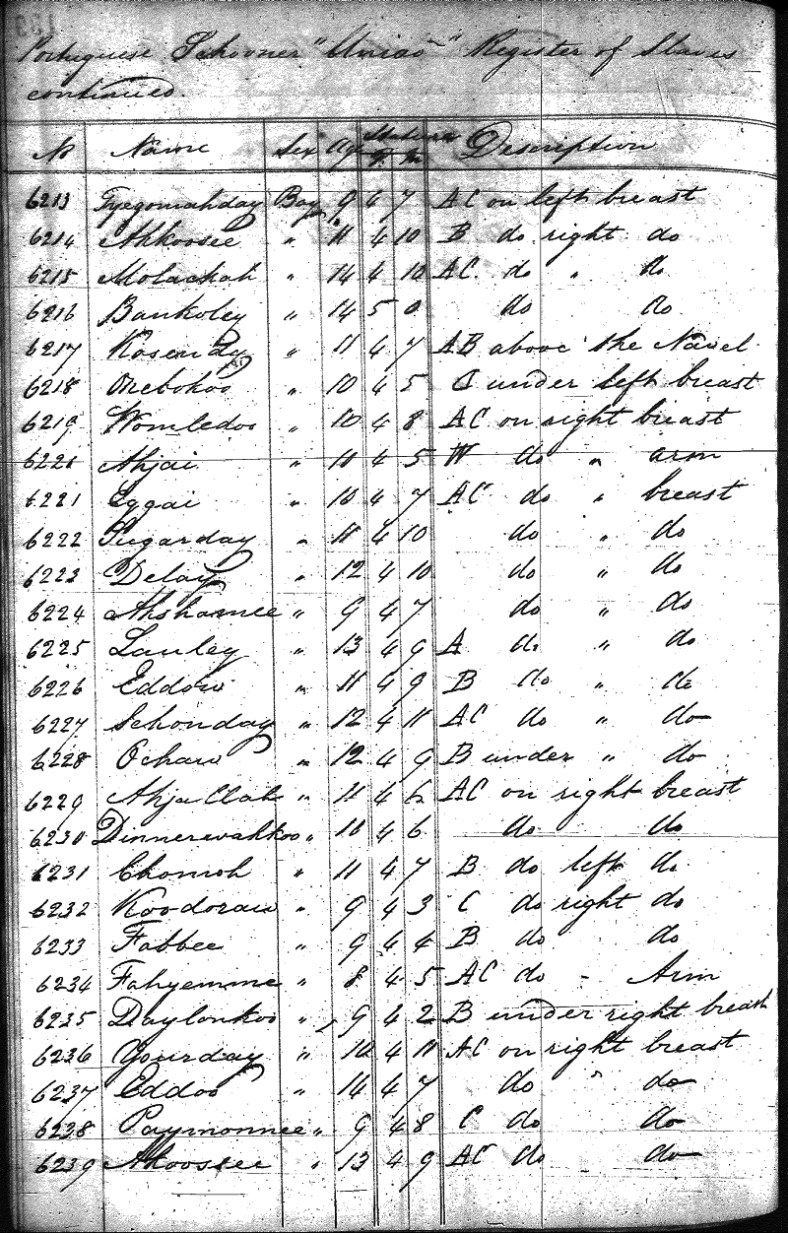 Portuguese Schooner "Uniao" Register of Slaves
continued.
No Name Sex Age Stature F. In Description
6213 Fyegomahday Boy 9 4 7 AC on left breast
6214 Ahkoosee " 11 4 10 B do right do
6215 Molachah " 14 4 10 AC do " do
6216 Bankoley " 14 5 0 do do
6217 Kosendy " 11 4 7 AB above the Navel
6218 Onebokoo " 10 4 5 C under left breast
6219 Wombedoo " 10 4 8 AC on right breast
6220 Ahjai " 10 4 5 W do " arm
6221 Eggai " 10 4 7 AC do " breast
6222 Sugarday " 11 4 10 do " do
6223 Delay " 12 4 10 do " do
6224 Ahshamee " 9 4 7 do " do
6225 Lanley " 13 4 9 A do " do
6226 Eddow " 11 4 9 B do " do
6227 Schonday " 12 4 11 AC do " do
6228 Ochaw " 12 4 9 B under " do
6229 Ahja Clah " 11 4 6 AC on right breast
6230 Dinnerwahkoo " 10 4 6 do do
6231 Chomoh " 11 4 7 B do left do
6232 Koodoraw " 9 4 3 C do right do
6233 Fabbee " 9 4 4 B do do
6234 Fahyemme " 8 4 5 AC do - Arm
6235 Daylonkoo " 9 4 2 B under right breast
6236 Yourday " 14 4 11 AC on right breast
6237 Eddoo " 14 4 7 do " do
6238 Paymonnee " 9 4 8 C do do
6239 Ahoossee " 13 4 9 AC do do